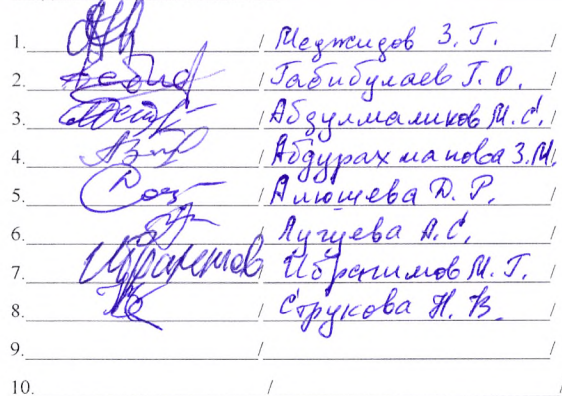 1. / Меджидов З. Г. /
2. / Габибулаев Г. О. /
3. / Абдулмаликов М. С. /
4. / Абдурахманова З. М. /
5. / Алюшева Д. Р. /
6. / Лугуева А. С. /
7. Ибрагимов / Ибрагимов М. Г. /
8. / Струкова Н. В. /
9. / /
10. / /